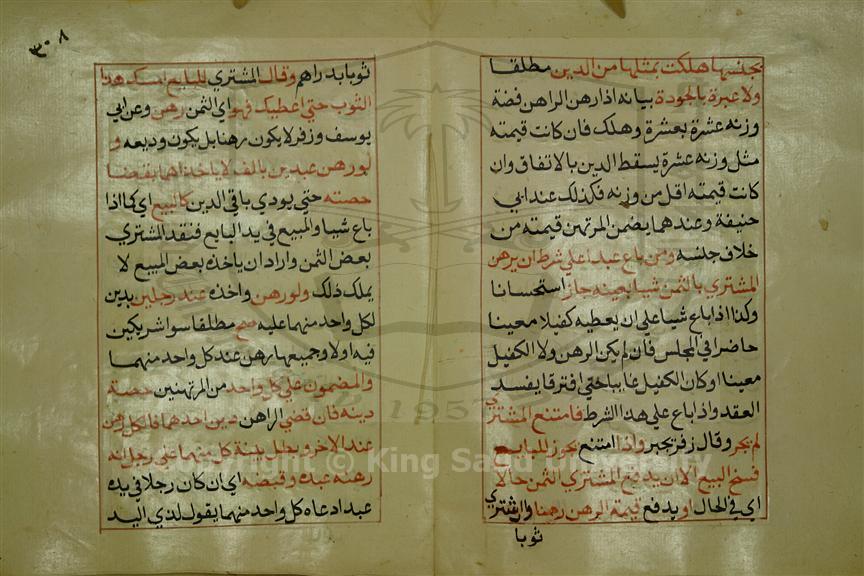 بجنسها هلكت بمثلها من الدين مطلقا
ولا عبرة بالجودة بيانه اذا رهن الراهن فضة
وزنه عشرة بعشرة وهلك فان كانت قيمته
مثل وزنه عشرة يسقط الدين بالاتفاق وان
كانت قيمته اقل من وزنه فكذلك عند ابي
حنيفة وعندهما يضمن المرتهن قيمته من
خلاف جنسه ومن باع عبدا علي شرط ان يرهن
المشتري بالثمن شيا بعينه جاز استحسانا
وكذا اذا باع شيا علي ان يعطيه كفيلا معينا
حاضرا في المجلس فان لم يكن الرهن ولا الكفيل
معينا او كان الكفيل غايبا حتي افترقا يفسد
العقد واذا باع علي هذا الشرط فامتنع المشتري
لم يجبر وقال زفر يجبر واذا امتنع يجوز للبايع
فسخ البيع الا ان يدفع المشتري الثمن حالا
اي في الحال او يدفع قيمة الرهن رهنا وان اشتري
ثوبا
٣٠٨
ثوبا بدراهم وقال المشتري للبايع امسك هذا
الثوب حتي اعطيك فهو اي الثمن رهن وعن ابي
يوسف وزفر لا يكون رهنا بل يكون وديعه و
لو رهن عبدين بالف لا ياخذ احدهما بقضا
حصته حتي يودي باقي الدين كالبيع اي كما اذا
باع شيا والمبيع في يد البايع فنقد المشتري
بعض الثمن واراد ان ياخذه بعض المبيع لا
يملك ذلك ولو رهن واخذه عند رجلين بدين
لكل واحد منهما عليه صح مطلقا سوا شريكين
فيه اولا وجميعها رهن عند كل واحد منهما
والمضمون علي كل واحد من المرتهنين حصة
دينه فان قضي الراهن دين احدهما فالكل رهن
عند الاخر وبطل بينة كل منهما علي رجل انه
رهنه عبده وقبضه اي ان كان رجلا في يده
عبد ادعاه كل واحد منهما يقول لذي اليد
Copyright © King Saud University
1957